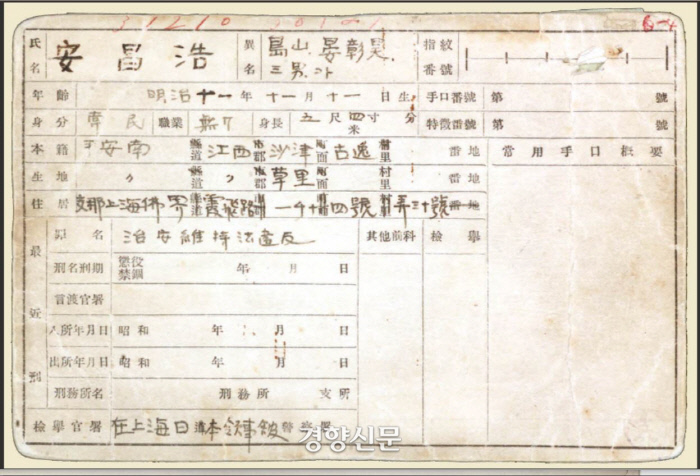 氏名 安昌浩 異名 島山、晏彰昊、三男、 指紋番號
年齡 明治十一年十一月十一日生 手口番號 第 號
身分 常民 職業 無 身長 五尺四寸 分 米 特徵番號 第 號
本籍 平安南道 江西郡 沙津面 古逸里 番地 常用手口概要
生地 〃 道 〃 郡 草里面 村里 番地
住居 支那上海佛界霞飛路 一千十四號弄三十號
最近刑
罪名 治安維持法違反 其他前科 檢擧
刑名刑期 懲役 禁錮 年 月 日
言渡官署
入所年月日 昭和 年 月 日
出所年月日 昭和 年 月 日
刑務所名 刑務所 支所
檢擧官署 在上海日本領事館警察署
경향신문